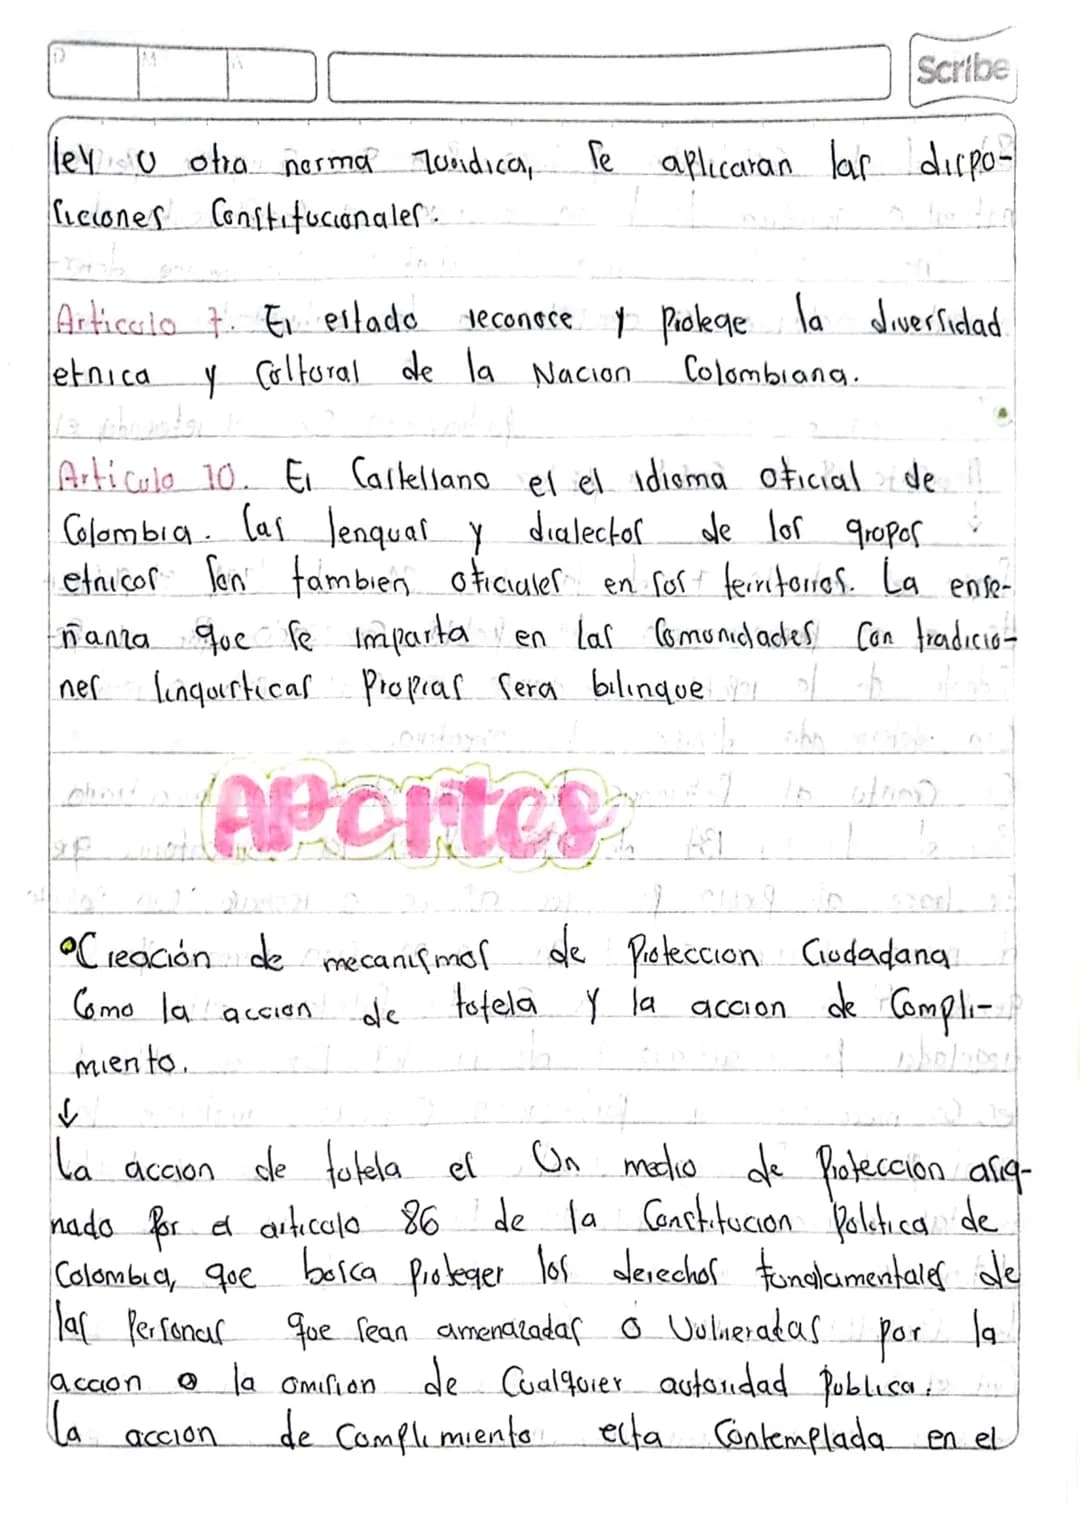 D M A
Scribe
ley u otra norma Juridica, se aplicaran las dispo-
siciones Constitucionales.
Articulo 7. El estado reconoce y Protege la diversidad
etnica y Cultural de la Nacion Colombiana.
Articulo 10. El Castellano es el idioma oficial de
Colombia. las lenguas y dialectos de los grupos
etnicos son tambien oficiales en sus territorios. La ense-
ñanza que se imparta en las Comunidades Con tradicio-
nes linguisticas Propias sera bilingue
APortes
•Creación de mecanismos de Proteccion Ciudadana
Como la accion de tutela y la accion de Compli-
miento.
↓
la accion de tutela es Un medio de Proteccion asig-
nado Por el articulo 86 de la Constitucion Politica de
Colombia, que busca Proteger los derechos fundamentales de
las Personas que sean amenazadas o Vulneradas por la
accion o la omision de Cualquier autoridad Publica.
la accion de Complimiento esta Contemplada en el